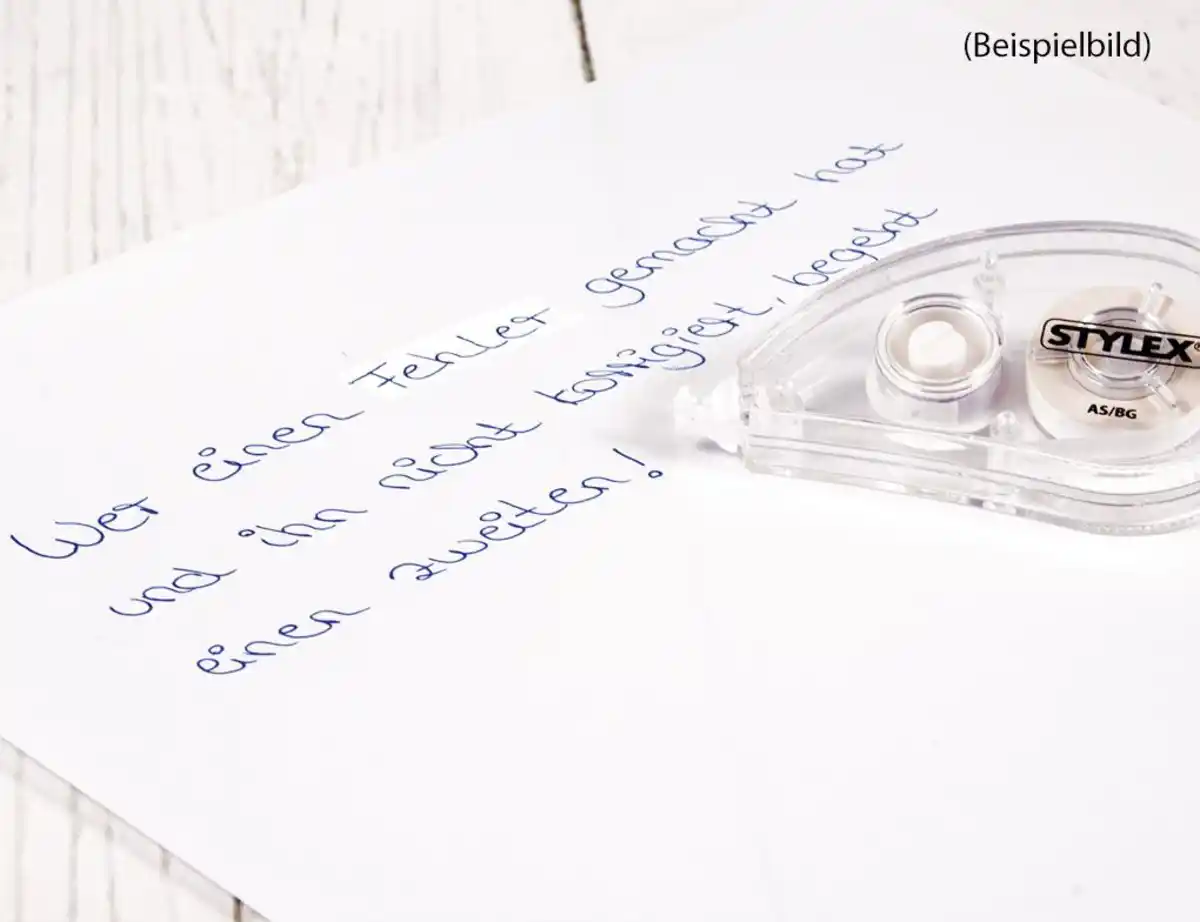 (Beispielbild)
Wer einen Fehler gemacht hat
und ihn nicht korrigiert, begeht
einen zweiten!
STYLEX®
AS/BG